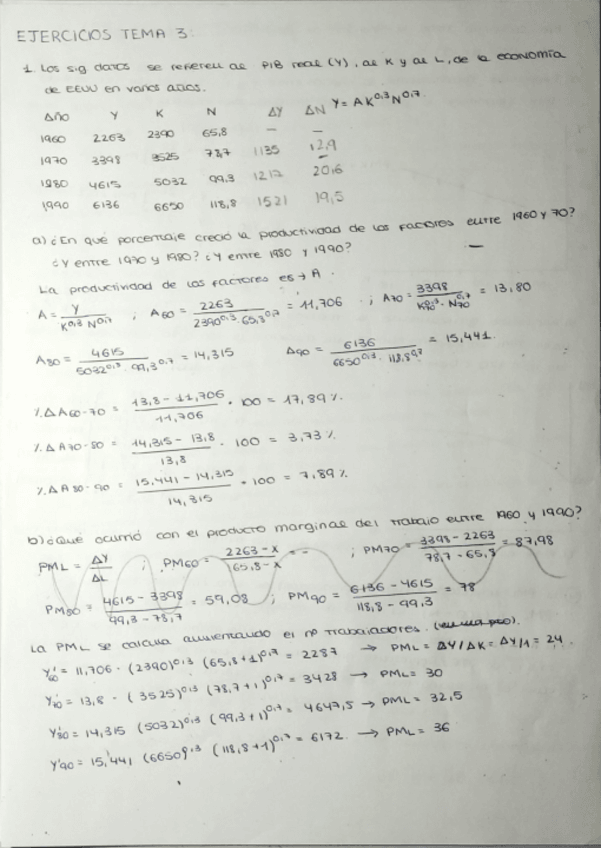 EJERCICIOS TEMA 3:
1. Los sig datos se refieren al PIB real (Y), al K y al L, de la economía
de EEUU en varios años.
Año Y K N ΔY ΔN Y = A K^0,3 N^0,7
1960 2263 2390 65,8 - -
1970 3398 3525 78,7 1135 12,9
1980 4615 5032 99,3 1217 20,6
1990 6136 6650 118,8 1521 19,5
a) ¿En qué porcentaje creció la productividad de los factores entre 1960 y 70?
¿Y entre 1970 y 1980? ¿Y entre 1980 y 1990?
La productividad de los factores es → A.
A = Y / K^0,3 N^0,7 ; A60 = 2263 / 2390^0,3 · 65,8^0,7 = 11,706 ; A70 = 3398 / K70^0,3 · N70^0,7 = 13,80
A80 = 4615 / 5032^0,3 · 99,3^0,7 = 14,315 A90 = 6136 / 6650^0,3 · 118,8^0,7 = 15,441
%ΔA60-70 = 13,8 - 11,706 / 11,706 · 100 = 17,89 %.
%ΔA70-80 = 14,315 - 13,8 / 13,8 · 100 = 3,73 %.
%ΔA80-90 = 15,441 - 14,315 / 14,315 · 100 = 7,89 %
b) ¿Qué ocurrió con el producto marginal del trabajo entre 1960 y 1990?
PML = ΔY / ΔL ; PM60 = 2263 - x / 65,8 - x = - ; PM70 = 3398 - 2263 / 78,7 - 65,8 = 87,98
PM80 = 4615 - 3398 / 99,3 - 78,7 = 59,08 ; PM90 = 6136 - 4615 / 118,8 - 99,3 = 78
La PML se calcula aumentando el nº trabajadores.
Y'60 = 11,706 · (2390)^0,3 (65,8+1)^0,7 = 2287 → PML = ΔY/ΔK = ΔY/1 = 24
Y'70 = 13,8 · (3525)^0,3 (78,7+1)^0,7 = 3428 → PML = 30
Y'80 = 14,315 (5032)^0,3 (99,3+1)^0,7 = 4647,5 → PML = 32,5
Y'90 = 15,441 (6650)^0,3 (118,8+1)^0,7 = 6172. → PML = 36